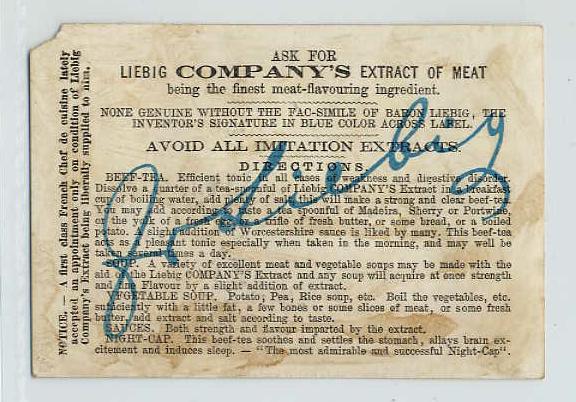 ASK FOR
LIEBIG COMPANY'S EXTRACT OF MEAT
being the finest meat-flavouring ingredient.
NONE GENUINE WITHOUT THE FAC-SIMILE OF BARON LIEBIG, THE
INVENTOR'S SIGNATURE IN BLUE COLOR ACROSS LABEL.
AVOID ALL IMITATION EXTRACTS.
DIRECTIONS.
BEEF-TEA. Efficient tonic in all cases of weakness and digestive disorder.
Dissolve a quarter of a tea-spoonful of Liebig COMPANY'S Extract in a breakfast
cup of boiling water, add plenty of salt, this will make a strong and clear beef-tea.
You may add according to taste a tea spoonful of Madeira, Sherry or Portwine,
or the yolk of a fresh egg, or a trifle of fresh butter, or some bread, or a boiled
potato. A slight addition of Worcestershire sauce is liked by many. This beef-tea
acts as a pleasant tonic especially when taken in the morning, and may well be
taken several times a day.
SOUP. A variety of excellent meat and vegetable soups may be made with the
aid of the Liebig COMPANY'S Extract and any soup will acquire at once strength
and fine Flavour by a slight addition of extract.
VEGETABLE SOUP. Potato, Pea, Rice soup, etc. Boil the vegetables, etc.
sufficiently with a little fat, a few bones or some slices of meat, or some fresh
butter, add extract and salt according to taste.
SAUCES. Both strength and flavour imparted by the extract.
NIGHT-CAP. This beef-tea soothes and settles the stomach, allays brain ex-
citement and induces sleep. — "The most admirable and successful Night-Cap".
NOTICE. — A first class French Chef de cuisine lately
accepted an appointment only on condition of Liebig
Company's Extract being liberally supplied to him.
Liebig